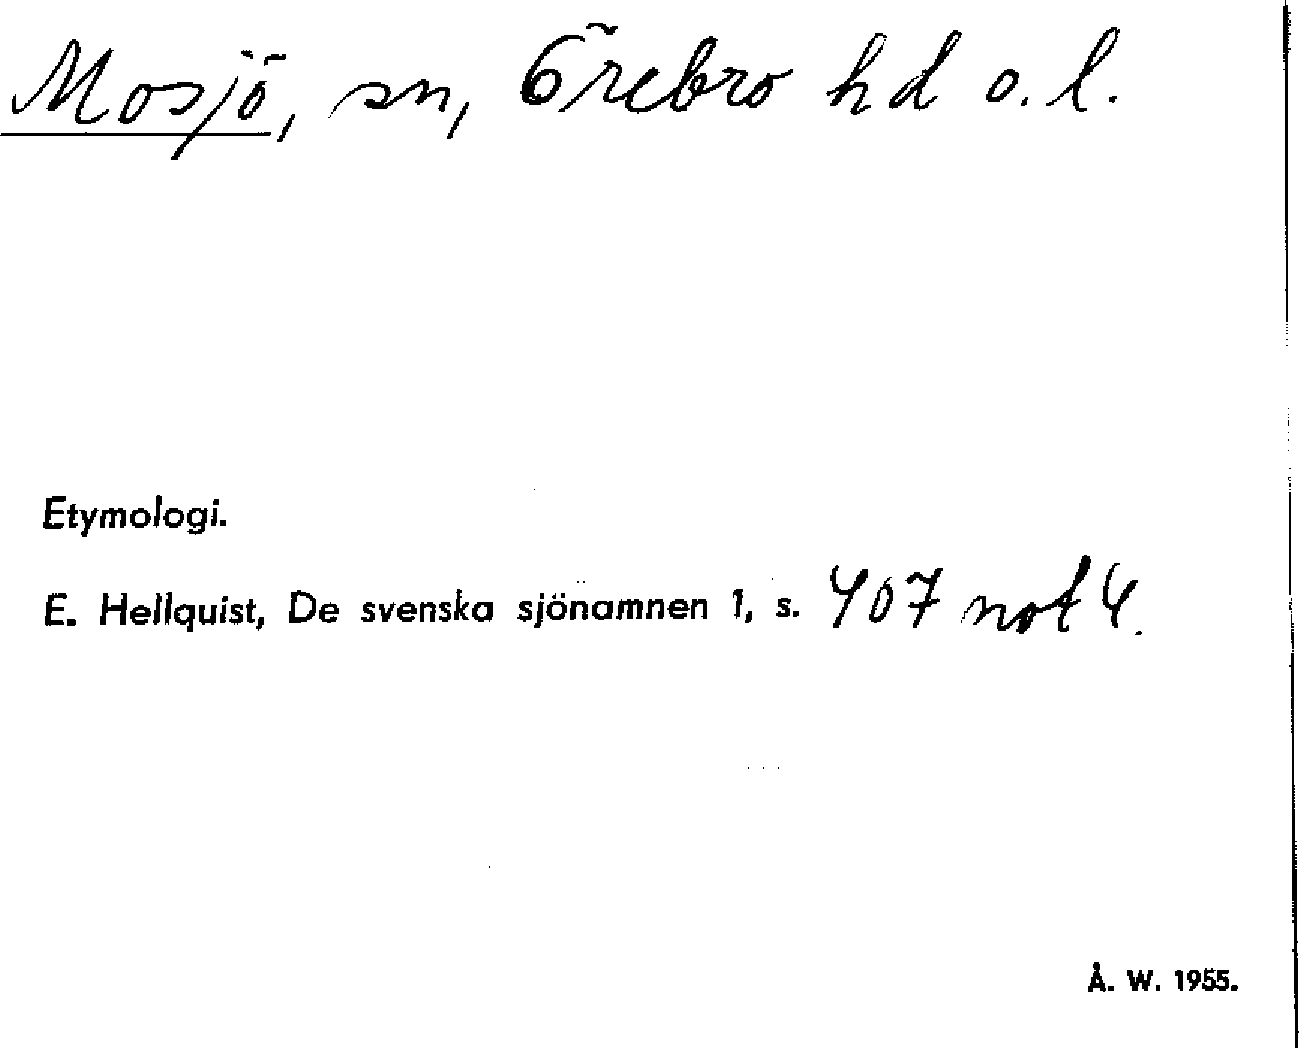 Mosjö, sn, Örebro hd o. l.
Etymologi.
E. Hellquist, De svenska sjönamnen 1, s. 407 not 4.
Å. W. 1955.